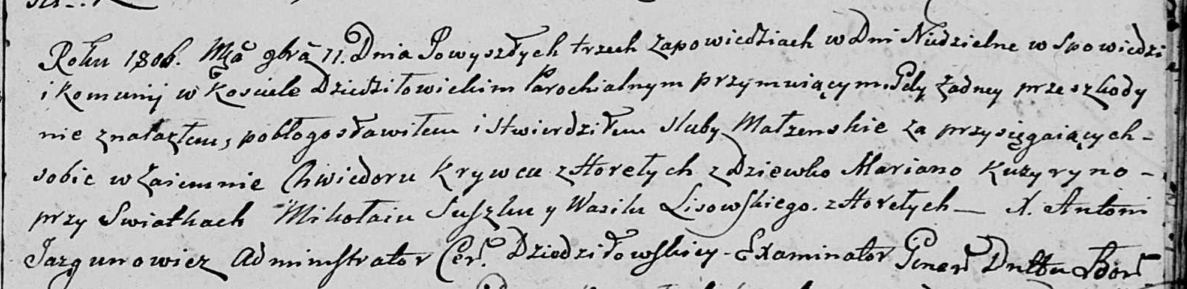 Roku 1806. Mca gbra 11. Dnia Powyszłych trzech zapowiedziach w Dni Niedzielne w Spowiedzi
i Komunij w Kościele Dziedziłowickim Parochialnym przymuiącym Gdy żadney przeszkody
nie znalazłem, pobłogosławiłem i stwierdziłem śluby Małżenskie za przysięgaiących
sobie wzaiemnie Chwiedoru Krywcu z Horełych z Dziewko Mariano Kuzyryno
przy Swiatkach Mikołaiu Suszku y Wasilu Lisowskiego z Horełych X. Antoni
Jazgunowicz Administrator Cer. Dziedziłowskiey Examinator Dnttu